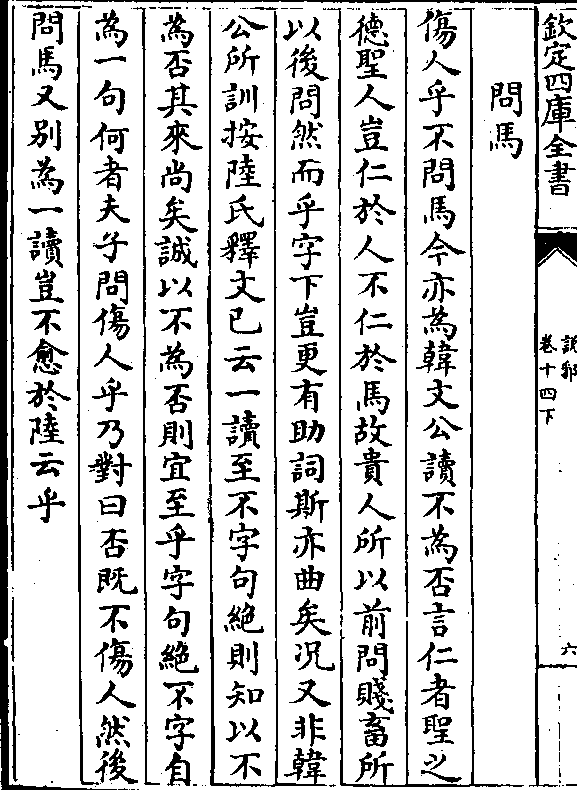 欽定四庫全書
說郛
卷十四下
六
問馬
傷人乎不問馬今亦為韓文公讀不為否言仁者聖之
德聖人豈仁於人不仁於馬故貴人所以前問賤畜所
以後問然而乎字下豈更有助詞斯亦曲矣况又非韓
公所訓按陸氏釋文已云一讀至不字句絶則知以不
為否其來尚矣誠以不為否則宜至乎字句絶不字自
為一句何者夫子問傷人乎乃對曰否既不傷人然後
問馬又别為一讀豈不愈於陸云乎